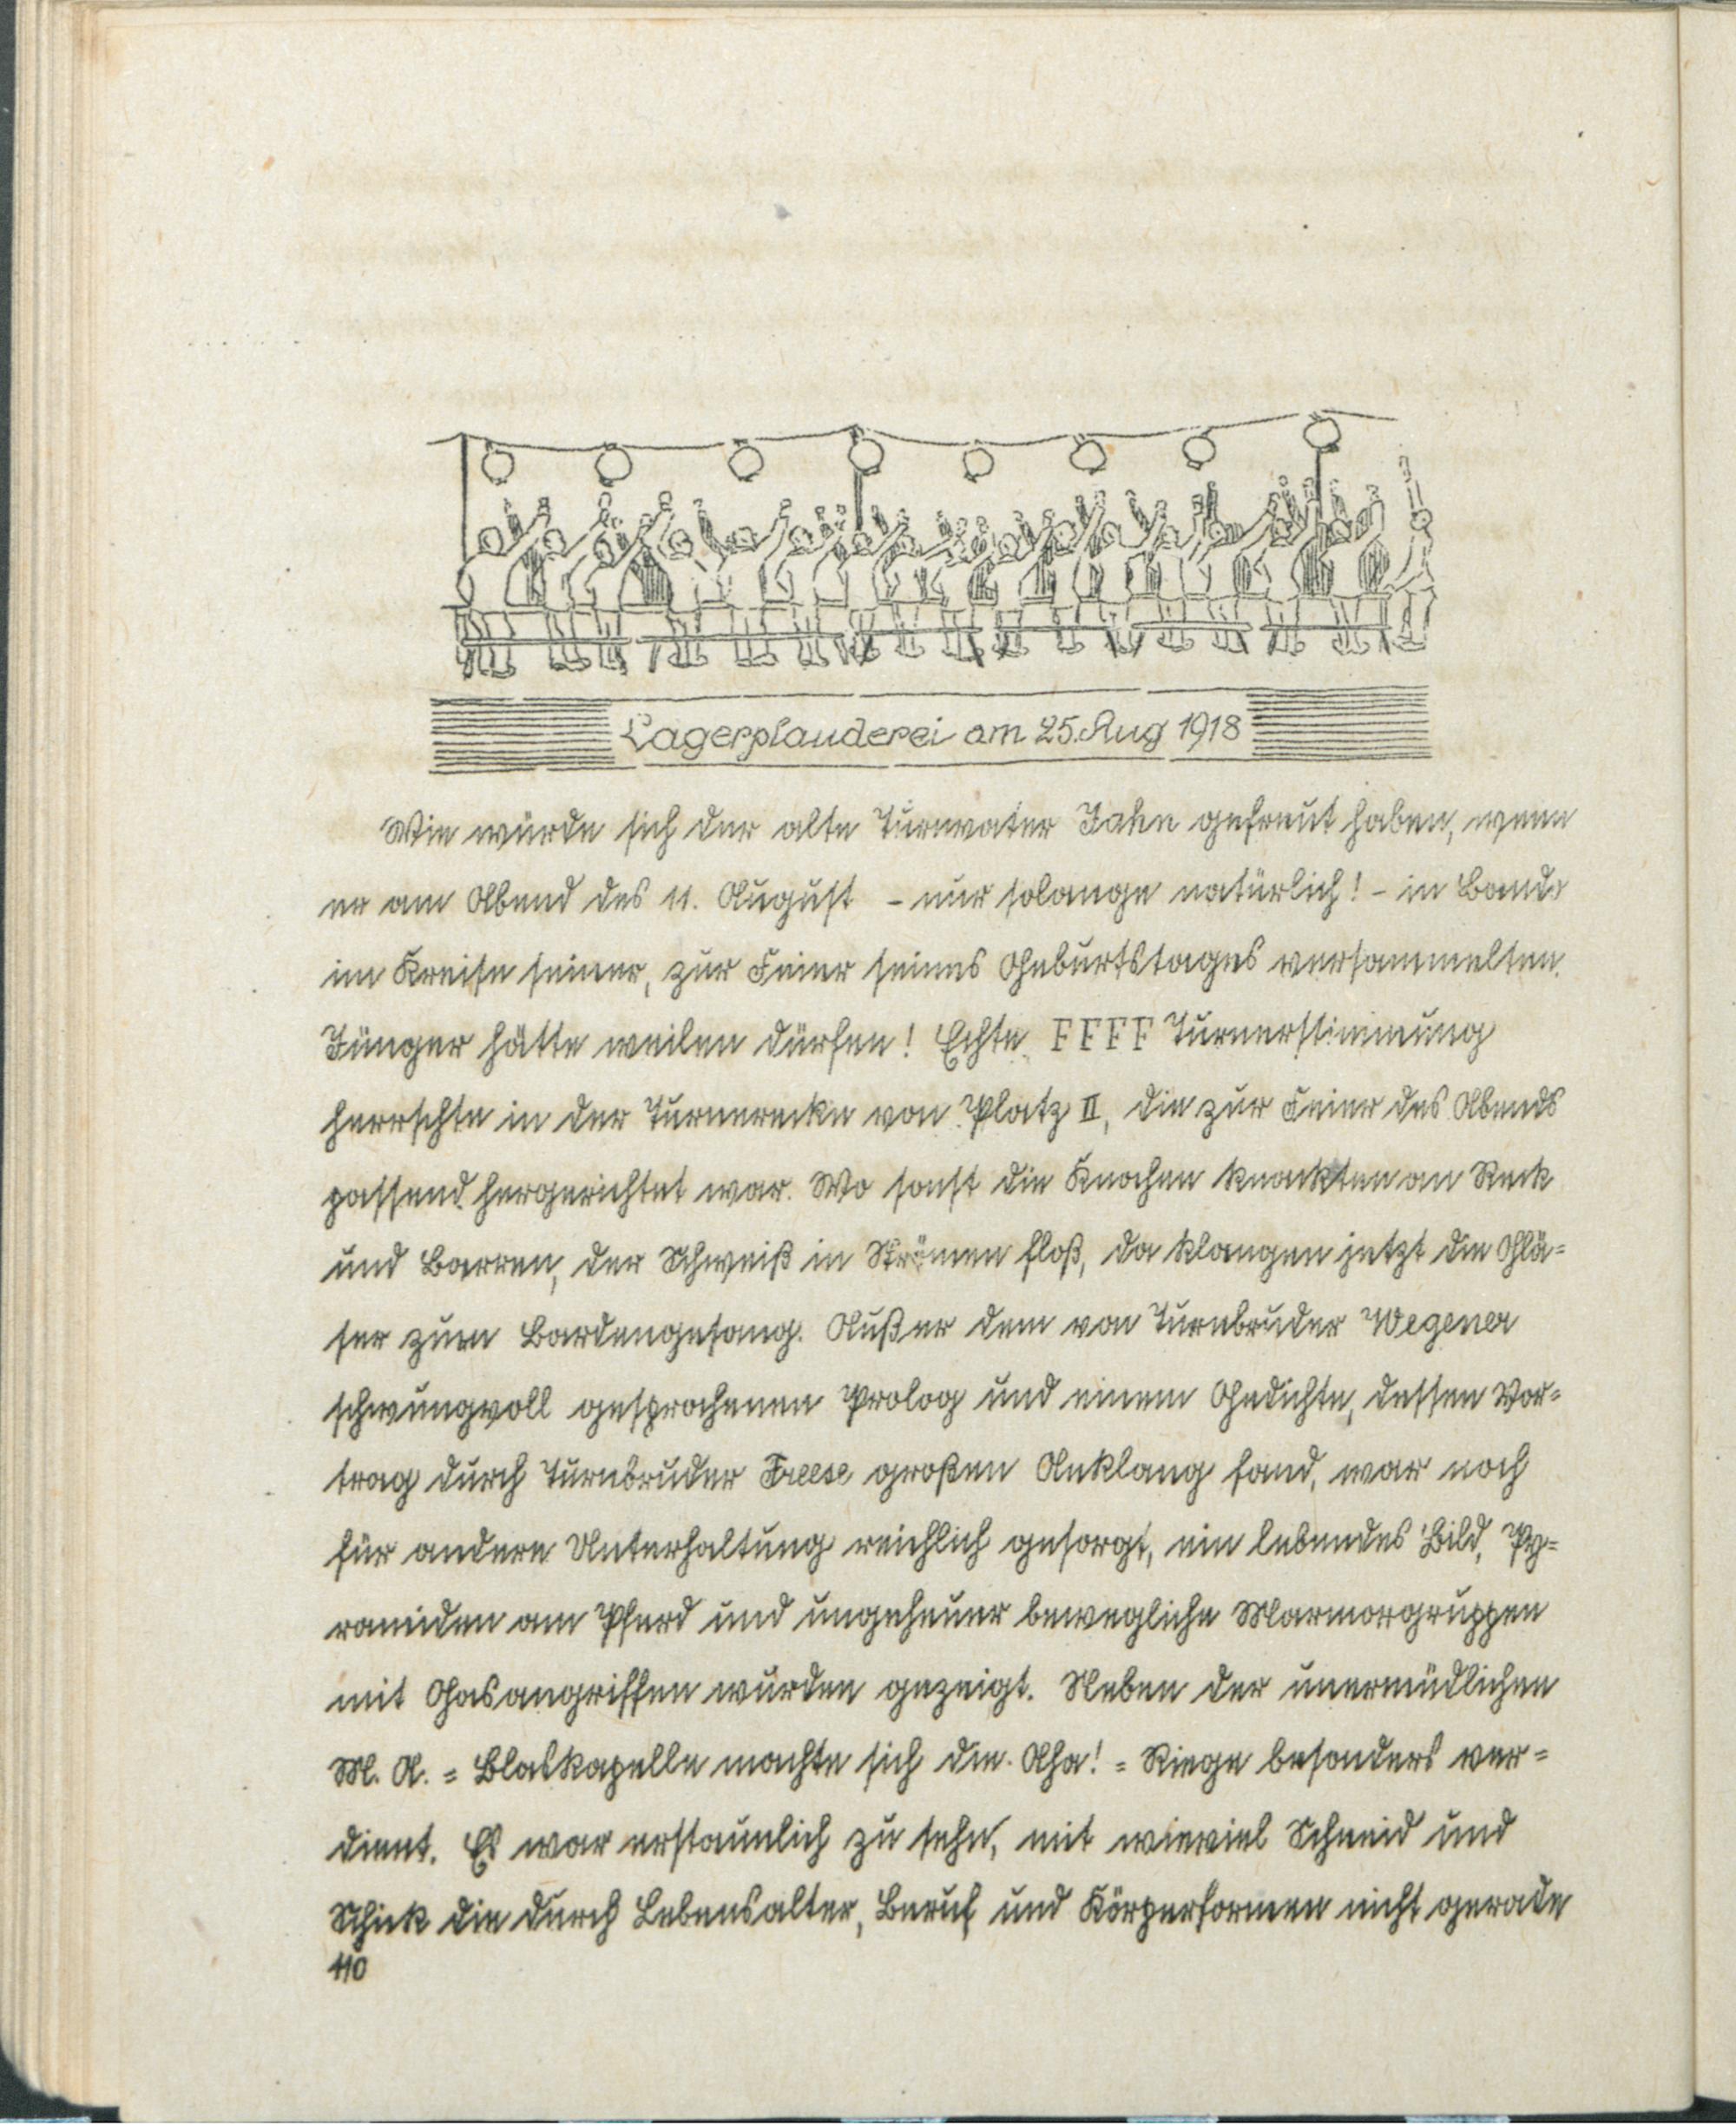 Lagerplauderei am 25. Aug 1918
Wie würde sich der alte Turnvater Jahn gefreut haben, wenn
er am Abend des 11. August - nur solange natürlich! - in Bando
im Kreise seiner, zur Feier seines Geburtstages versammelten
Jünger hätte weilen dürfen! Echte FFFF Turnerstimmung
herrschte in der Turnerecke von Platz II, die zur Feier des Abends
passend hergerichtet war. Wo sonst die Knochen knackten an Reck
und Barren, der Schweiß in Strömen floß, da klangen jetzt die Glä=
ser zum Bardengesang. Außer dem von Turnbruder Wegener
schwungvoll gesprochenen Prolog und einem Gedichte, dessen Vor=
trag durch Turnbruder Freese großen Anklang fand, war noch
für andere Unterhaltung reichlich gesorgt, ein lebendes Bild, Py=
ramiden am Pferd und ungeheuer bewegliche Marmorgruppen
mit Gasangriffen wurden gezeigt. Neben der unermüdlichen
M. A. = Blaskapelle machte sich die Aha! = Riege besonders ver=
dient. Es war erstaunlich zu sehn, mit wieviel Schneid und
Schick die durch Lebensalter, Beruf und Körperformen nicht gerade
110